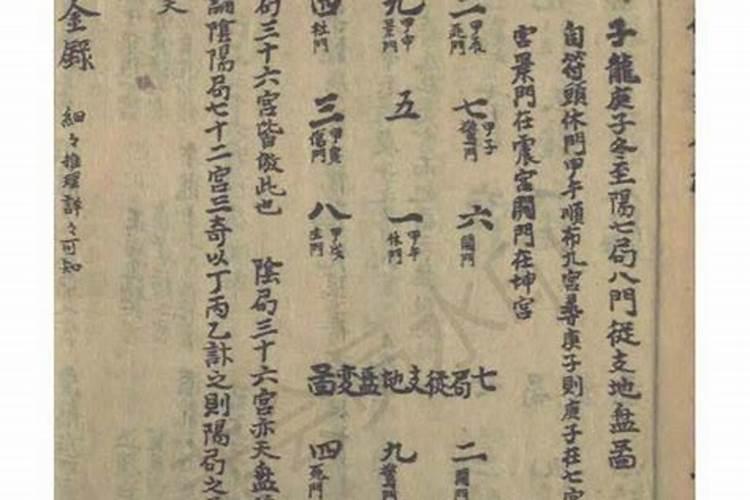 子龍庚子冬至陽七局八門從支地盤圖
自符頭休門甲午順布九宮尋庚子則庚子在七宮
宮景門在震宮開門在坤宮
二 甲辰 死門
七 甲子 驚門
六 開門
九 甲申 景門
五
一 甲午 休門
四 杜門
三 甲寅 傷門
八 甲戌 生門
七局從支地盤變圖
二 開門
九 驚門
四 死門
局三十六宮皆倣此也 陰局三十六宮亦天盤
論陰陽局七十二宮三奇以丁丙乙訣之則陽局之
天
金錄 細々推理詳々可知